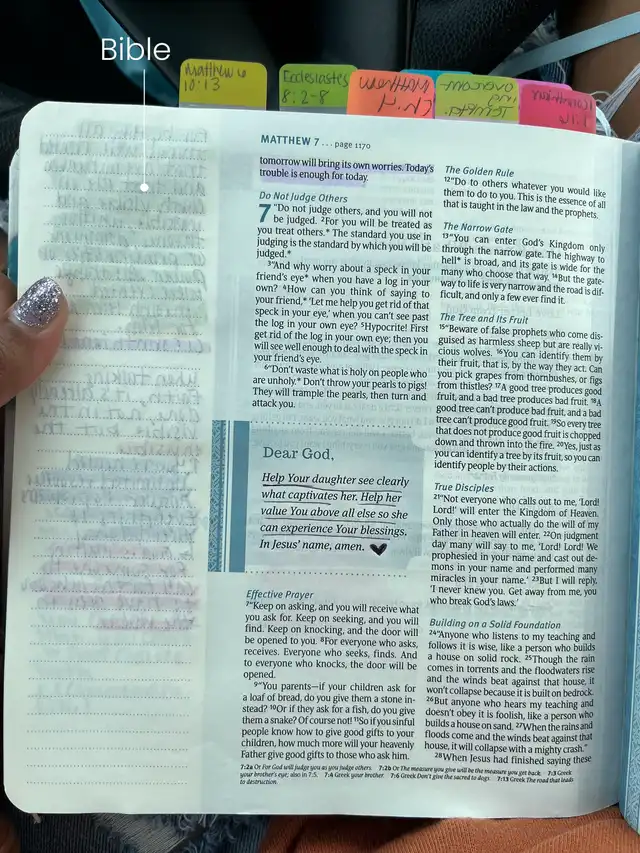 Bible
Matthew 6
10:13
Ecclesiastes
8:2-8
MATTHEW 7 ... page 1170
tomorrow will bring its own worries. Today's
trouble is enough for today.
Do Not Judge Others
7 "Do not judge others, and you will not
be judged. 2For you will be treated as
you treat others.* The standard you use in
judging is the standard by which you will be
judged.*
3"And why worry about a speck in your
friend's eye* when you have a log in your
own? 4How can you think of saying to
your friend,* 'Let me help you get rid of that
speck in your eye,' when you can't see past
the log in your own eye? 5Hypocrite! First
get rid of the log in your own eye; then you
will see well enough to deal with the speck in
your friend's eye.
6"Don't waste what is holy on people who
are unholy.* Don't throw your pearls to pigs!
They will trample the pearls, then turn and
attack you.
Dear God,
Help Your daughter see clearly
what captivates her. Help her
value You above all else so she
can experience Your blessings.
In Jesus' name, amen.
Effective Prayer
7"Keep on asking, and you will receive what
you ask for. Keep on seeking, and you will
find. Keep on knocking, and the door will
be opened to you. 8For everyone who asks,
receives. Everyone who seeks, finds. And
to everyone who knocks, the door will be
opened.
9"You parents—if your children ask for
a loaf of bread, do you give them a stone in-
stead? 10Or if they ask for a fish, do you give
them a snake? Of course not! 11So if you sinful
people know how to give good gifts to your
children, how much more will your heavenly
Father give good gifts to those who ask him.
The Golden Rule
12"Do to others whatever you would like
them to do to you. This is the essence of all
that is taught in the law and the prophets.
The Narrow Gate
13"You can enter God's Kingdom only
through the narrow gate. The highway to
hell* is broad, and its gate is wide for the
many who choose that way. 14But the gate-
way to life is very narrow and the road is dif-
ficult, and only a few ever find it.
The Tree and Its Fruit
15"Beware of false prophets who come dis-
guised as harmless sheep but are really vi-
cious wolves. 16You can identify them by
their fruit, that is, by the way they act. Can
you pick grapes from thornbushes, or figs
from thistles? 17A good tree produces good
fruit, and a bad tree produces bad fruit. 18A
good tree can't produce bad fruit, and a bad
tree can't produce good fruit. 19So every tree
that does not produce good fruit is chopped
down and thrown into the fire. 20Yes, just as
you can identify a tree by its fruit, so you can
identify people by their actions.
True Disciples
21"Not everyone who calls out to me, 'Lord!
Lord!' will enter the Kingdom of Heaven.
Only those who actually do the will of my
Father in heaven will enter. 22On judgment
day many will say to me, 'Lord! Lord! We
prophesied in your name and cast out de-
mons in your name and performed many
miracles in your name.' 23But I will reply,
'I never knew you. Get away from me, you
who break God's laws.'
Building on a Solid Foundation
24"Anyone who listens to my teaching and
follows it is wise, like a person who builds
a house on solid rock. 25Though the rain
comes in torrents and the floodwaters rise
and the winds beat against that house, it
won't collapse because it is built on bedrock.
26But anyone who hears my teaching and
doesn't obey it is foolish, like a person who
builds a house on sand. 27When the rains and
floods come and the winds beat against that
house, it will collapse with a mighty crash."
28When Jesus had finished saying these
7:2a Or For God will judge you as you judge others. 7:2b Or The measure you give will be the measure you get back. 7:3 Greek
your brother's eye; also in 7:5. 7:4 Greek your brother. 7:6 Greek Don't give the sacred to dogs. 7:13 Greek The road that leads
to destruction.